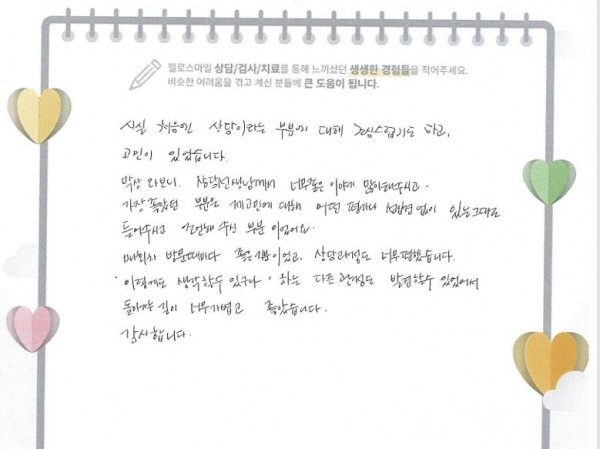 헬로스마일 상담/검사/치료를 통해 느끼셨던 생생한 경험들을 적어주세요.
비슷한 어려움을 겪고 계신 분들께 큰 도움이 됩니다.
사실 처음엔 상담이라는 부분에 대해 조심스럽기도 하고,
고민이 있었습니다.
막상 와보니, 상담선생님께서 너무좋은 이야기 많이해주시고.
가장 좋았던 부분은 제고민에 대해 어떤 평가나 선입견 없이 있는그대로
들어주시고 해주신 부분 이었어요.
매회차 방문때마다 좋은 기분이었고, 상담과정도 너무편했습니다.
'이렇게도 생각할수 있구나' 하는 다른 관점도 발견할수 있었어서
돌아가는 길이 너무가볍고 좋았습니다.
감사합니다.